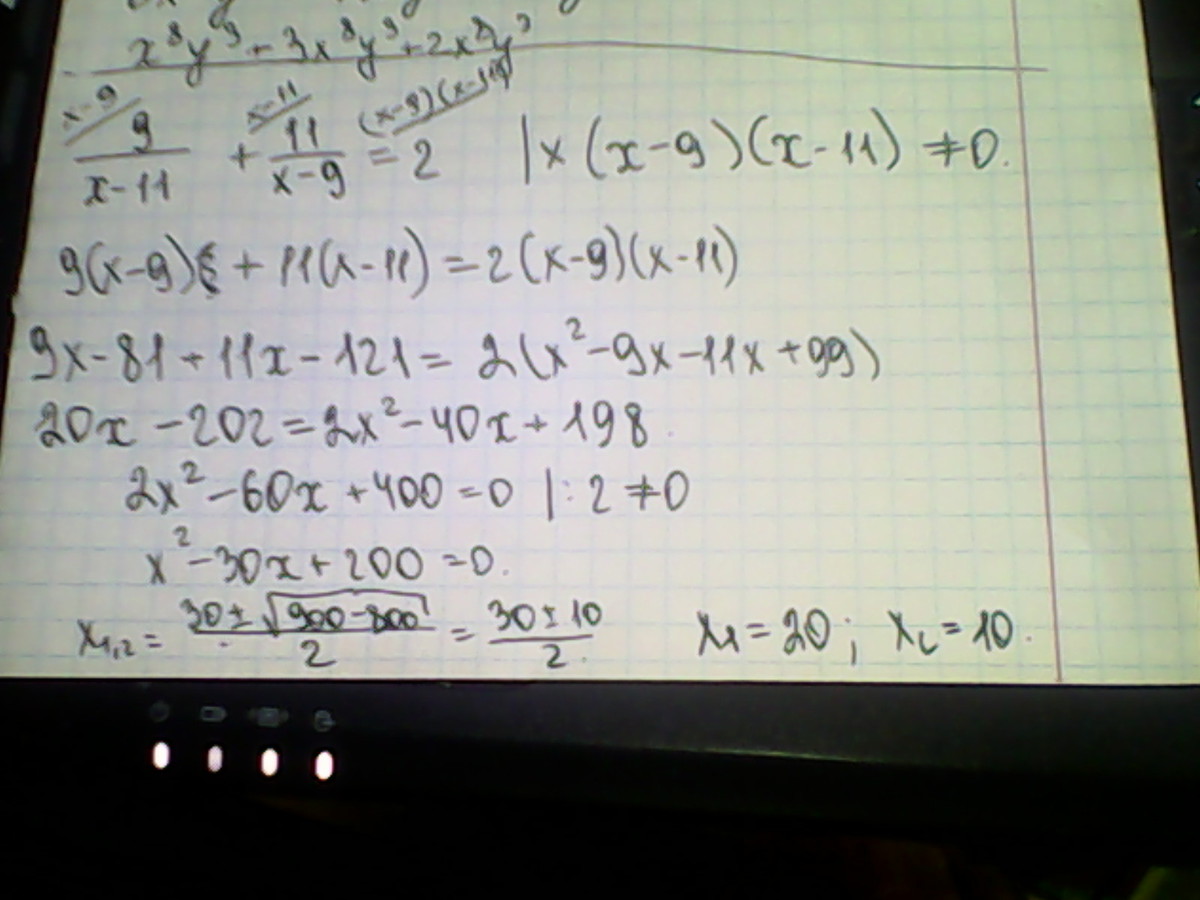 x⁸y⁹ + 3x⁸y⁹ + 2x⁸y⁹
x-9 x-11 (x-9)(x-11)
9/(x-11) + 11/(x-9) = 2 | × (x-9)(x-11) ≠ 0.
9(x-9) + 11(x-11) = 2(x-9)(x-11)
9x - 81 + 11x - 121 = 2(x² - 9x - 11x + 99)
20x - 202 = 2x² - 40x + 198
2x² - 60x + 400 = 0 | : 2 ≠ 0
x² - 30x + 200 = 0.
x₁,₂ = (30 ± √(900-800))/2 = (30 ± 10)/2 x₁ = 20 ; x₂ = 10.